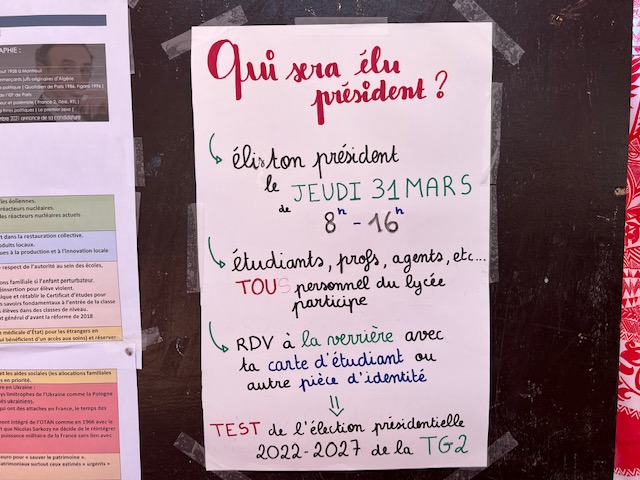 APHIE :
1958 à Montreuil
politique | Quotidien de Paris 1986, Figaro 1996 |
d'IEP de Paris
eur et polémiste | France 2, iTélé, RTL |
livres politiques | Le premier sexe |
mbre 2021 annonce de sa candidature
les éoliennes.
réacteurs nucléaires.
des réacteurs nucléaires actuels
dans la restauration collective.
oduits locaux.
es à la production et à l'innovation locale
respect de l'autorité au sein des écoles,
ons familiale si l'enfant perturbateur.
éinsertion pour élève violent.
ique et rétablir le Certificat d'études pour
s savoirs fondamentaux à l'entrée de la classe
s élèves dans des classes de niveau.
t général d'avant la réforme de 2018
médicale d'État) pour les étrangers en
ui bénéficient d'un accès aux soins) et réserver
et les aides sociales (les allocations familiales
s en priorité.
re en Ukraine :
ys limitrophes de l'Ukraine comme la Pologne
és ukrainiens.
ui ont des attaches en France, le temps des
ent intégré de l'OTAN comme en 1966 avec le
t que Nicolas Sarkozy ne décide de le réintégrer
puissance militaire de la France sans lien avec
euro pour « sauver le patrimoine ».
atrimoniaux surtout ceux estimés « urgents »
Qui sera élu
président ?
élis ton président
le JEUDI 31 MARS
de 8h - 16h
étudiants, profs, agents, etc...
TOUS personnel du lycée
participe
RDV à la verrière avec
ta carte d'étudiant ou
autre pièce d'identité
TEST de l'élection présidentielle
2022-2027 de la TG2